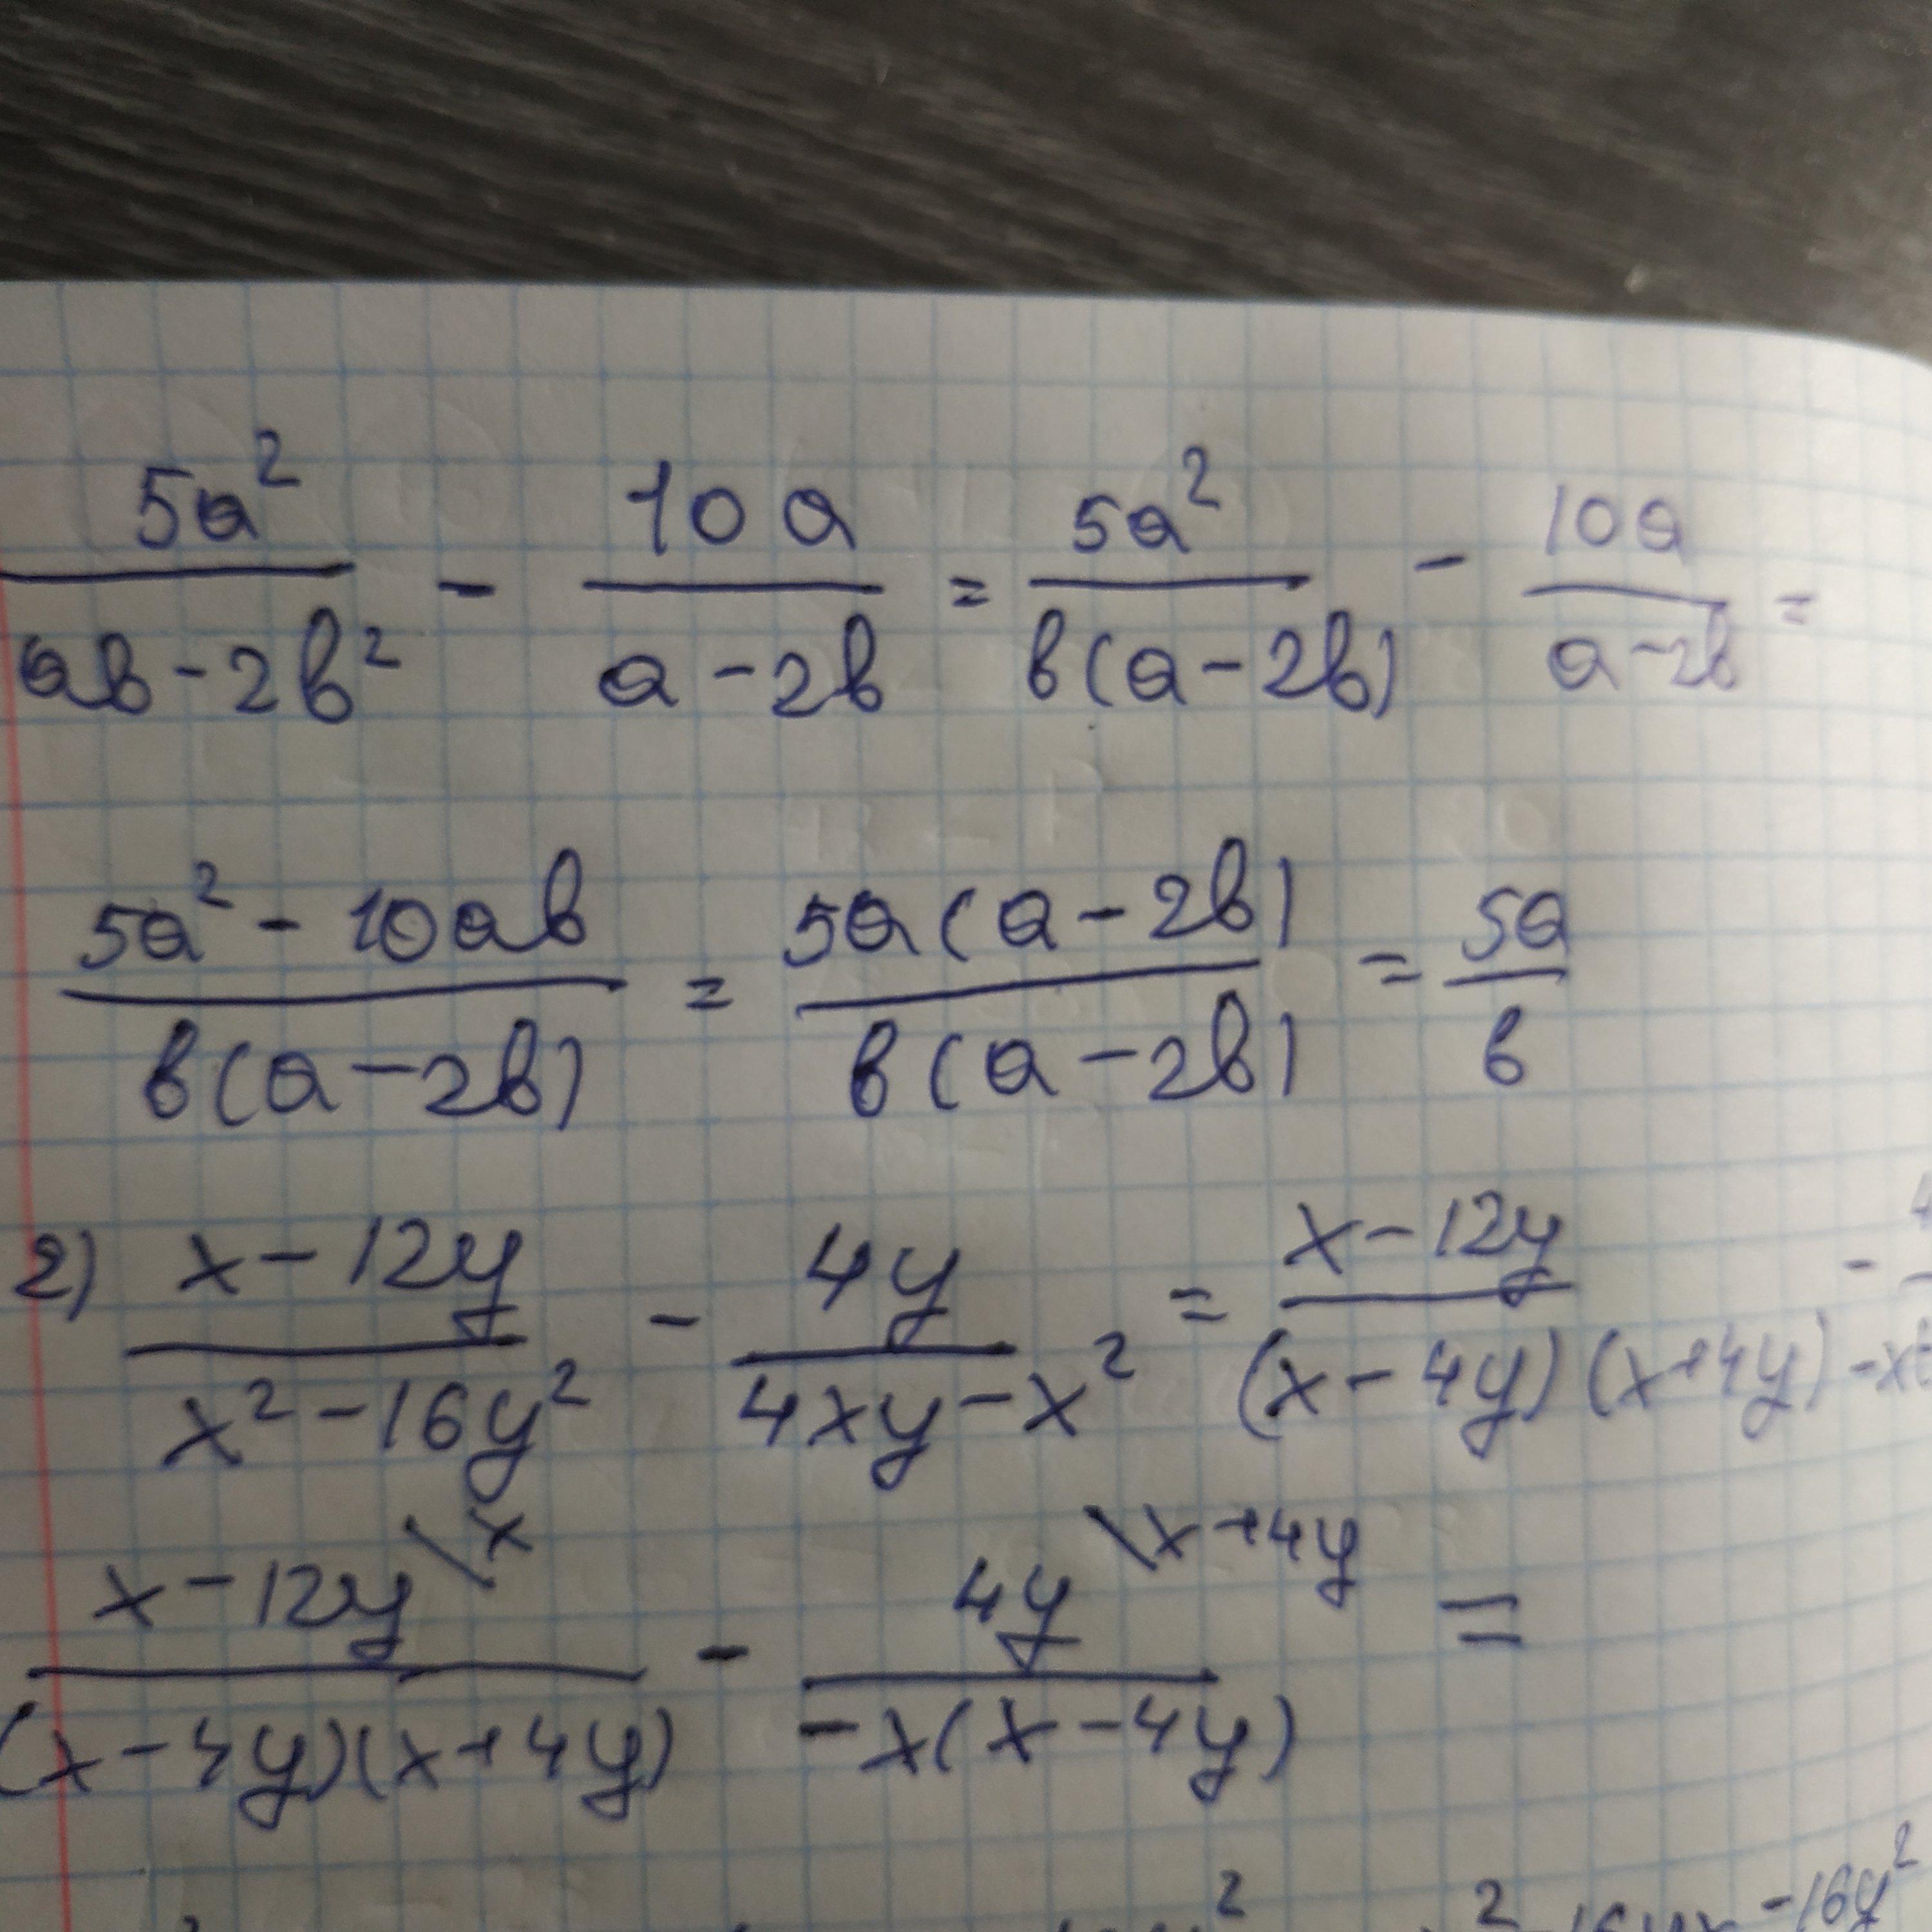 5a² / (ab - 2b²) - 10a / (a - 2b) = 5a² / (b(a - 2b)) - 10a / (a - 2b) =
(5a² - 10ab) / (b(a - 2b)) = 5a(a - 2b) / (b(a - 2b)) = 5a / b
2) (x - 12y) / (x² - 16y²) - 4y / (4xy - x²) = (x - 12y) / ((x - 4y)(x + 4y)) -
(x - 12y \x) / ((x - 4y)(x + 4y)) - (4y \x + 4y) / (-x(x - 4y)) =
-16y²